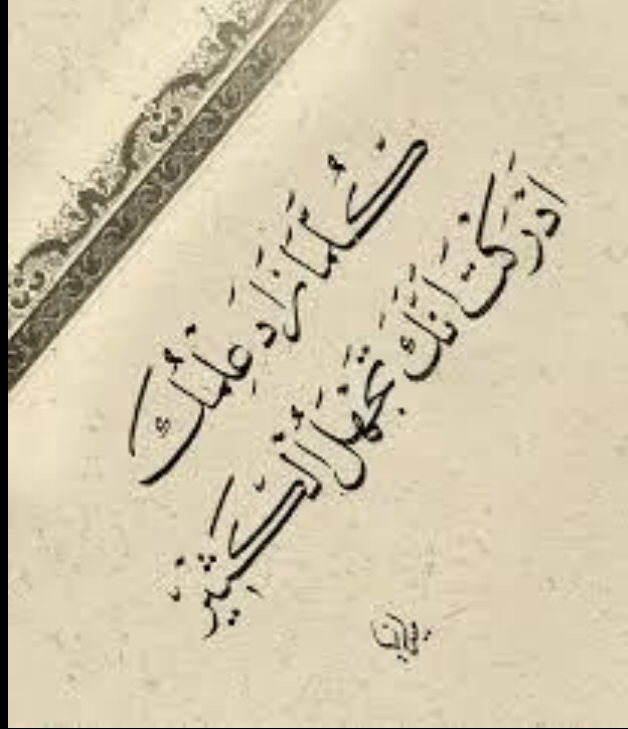 كُلَّمَا زَادَ عِلْمُكَ
ادْرَكْتَ أَنَّكَ تَجْهَلُ الْكَثِيْرَ